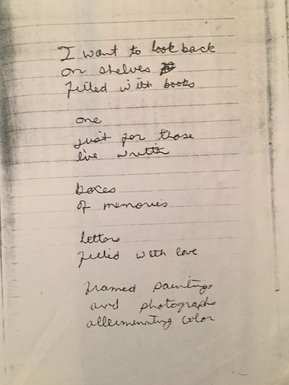 I want to look back
on shelves
filled with books
one
just for those
i've written
boxes
of memories
letters
filled with love
framed paintings
and photographs
alleuminating color